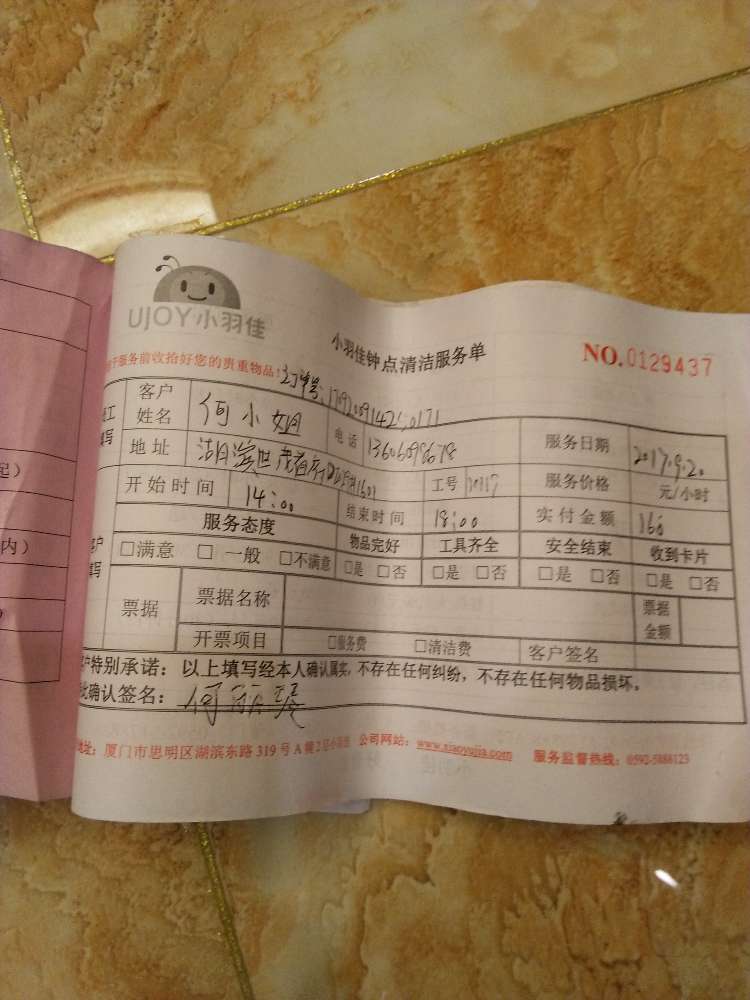 UJOY小羽佳
小羽佳钟点清洁服务单
NO.0129437
服务前收拾好您的贵重物品!
客户姓名 何小姐 电话 13606098678 服务日期 2017.9.20
地址 工号 服务价格 元/小时
开始时间 14:00 结束时间 18:00 实付金额 160
服务态度 物品完好 工具齐全 安全结束 收到卡片
□满意 □一般 □不满意 □是 □否 □是 □否 □是 □否 □是 □否
票据 票据名称 票据金额
开票项目 □服务费 □清洁费 客户签名
户特别承诺:以上填写经本人确认属实,不存在任何纠纷,不存在任何物品损坏。
此确认签名:何
地址:厦门市思明区湖滨东路319号A幢2层小羽佳 公司网站:www.xiaoyujia.com 服务监督热线:0592-5888123
起)
内)